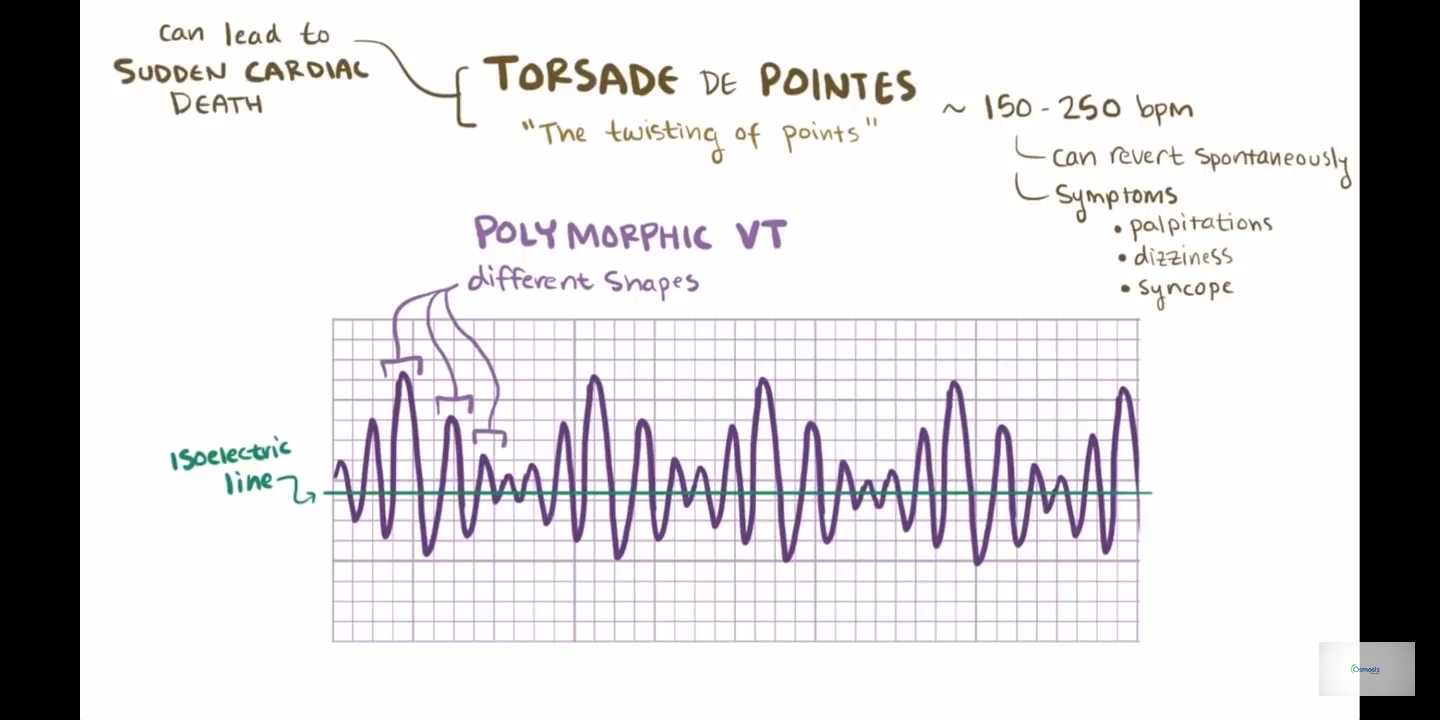 can lead to
SUDDEN CARDIAC
DEATH
TORSADE DE POINTES
"The twisting of points"
~ 150 - 250 bpm
can revert spontaneously
Symptoms
• palpitations
• dizziness
• syncope
POLYMORPHIC VT
different shapes
Isoelectric
line
Osmosis